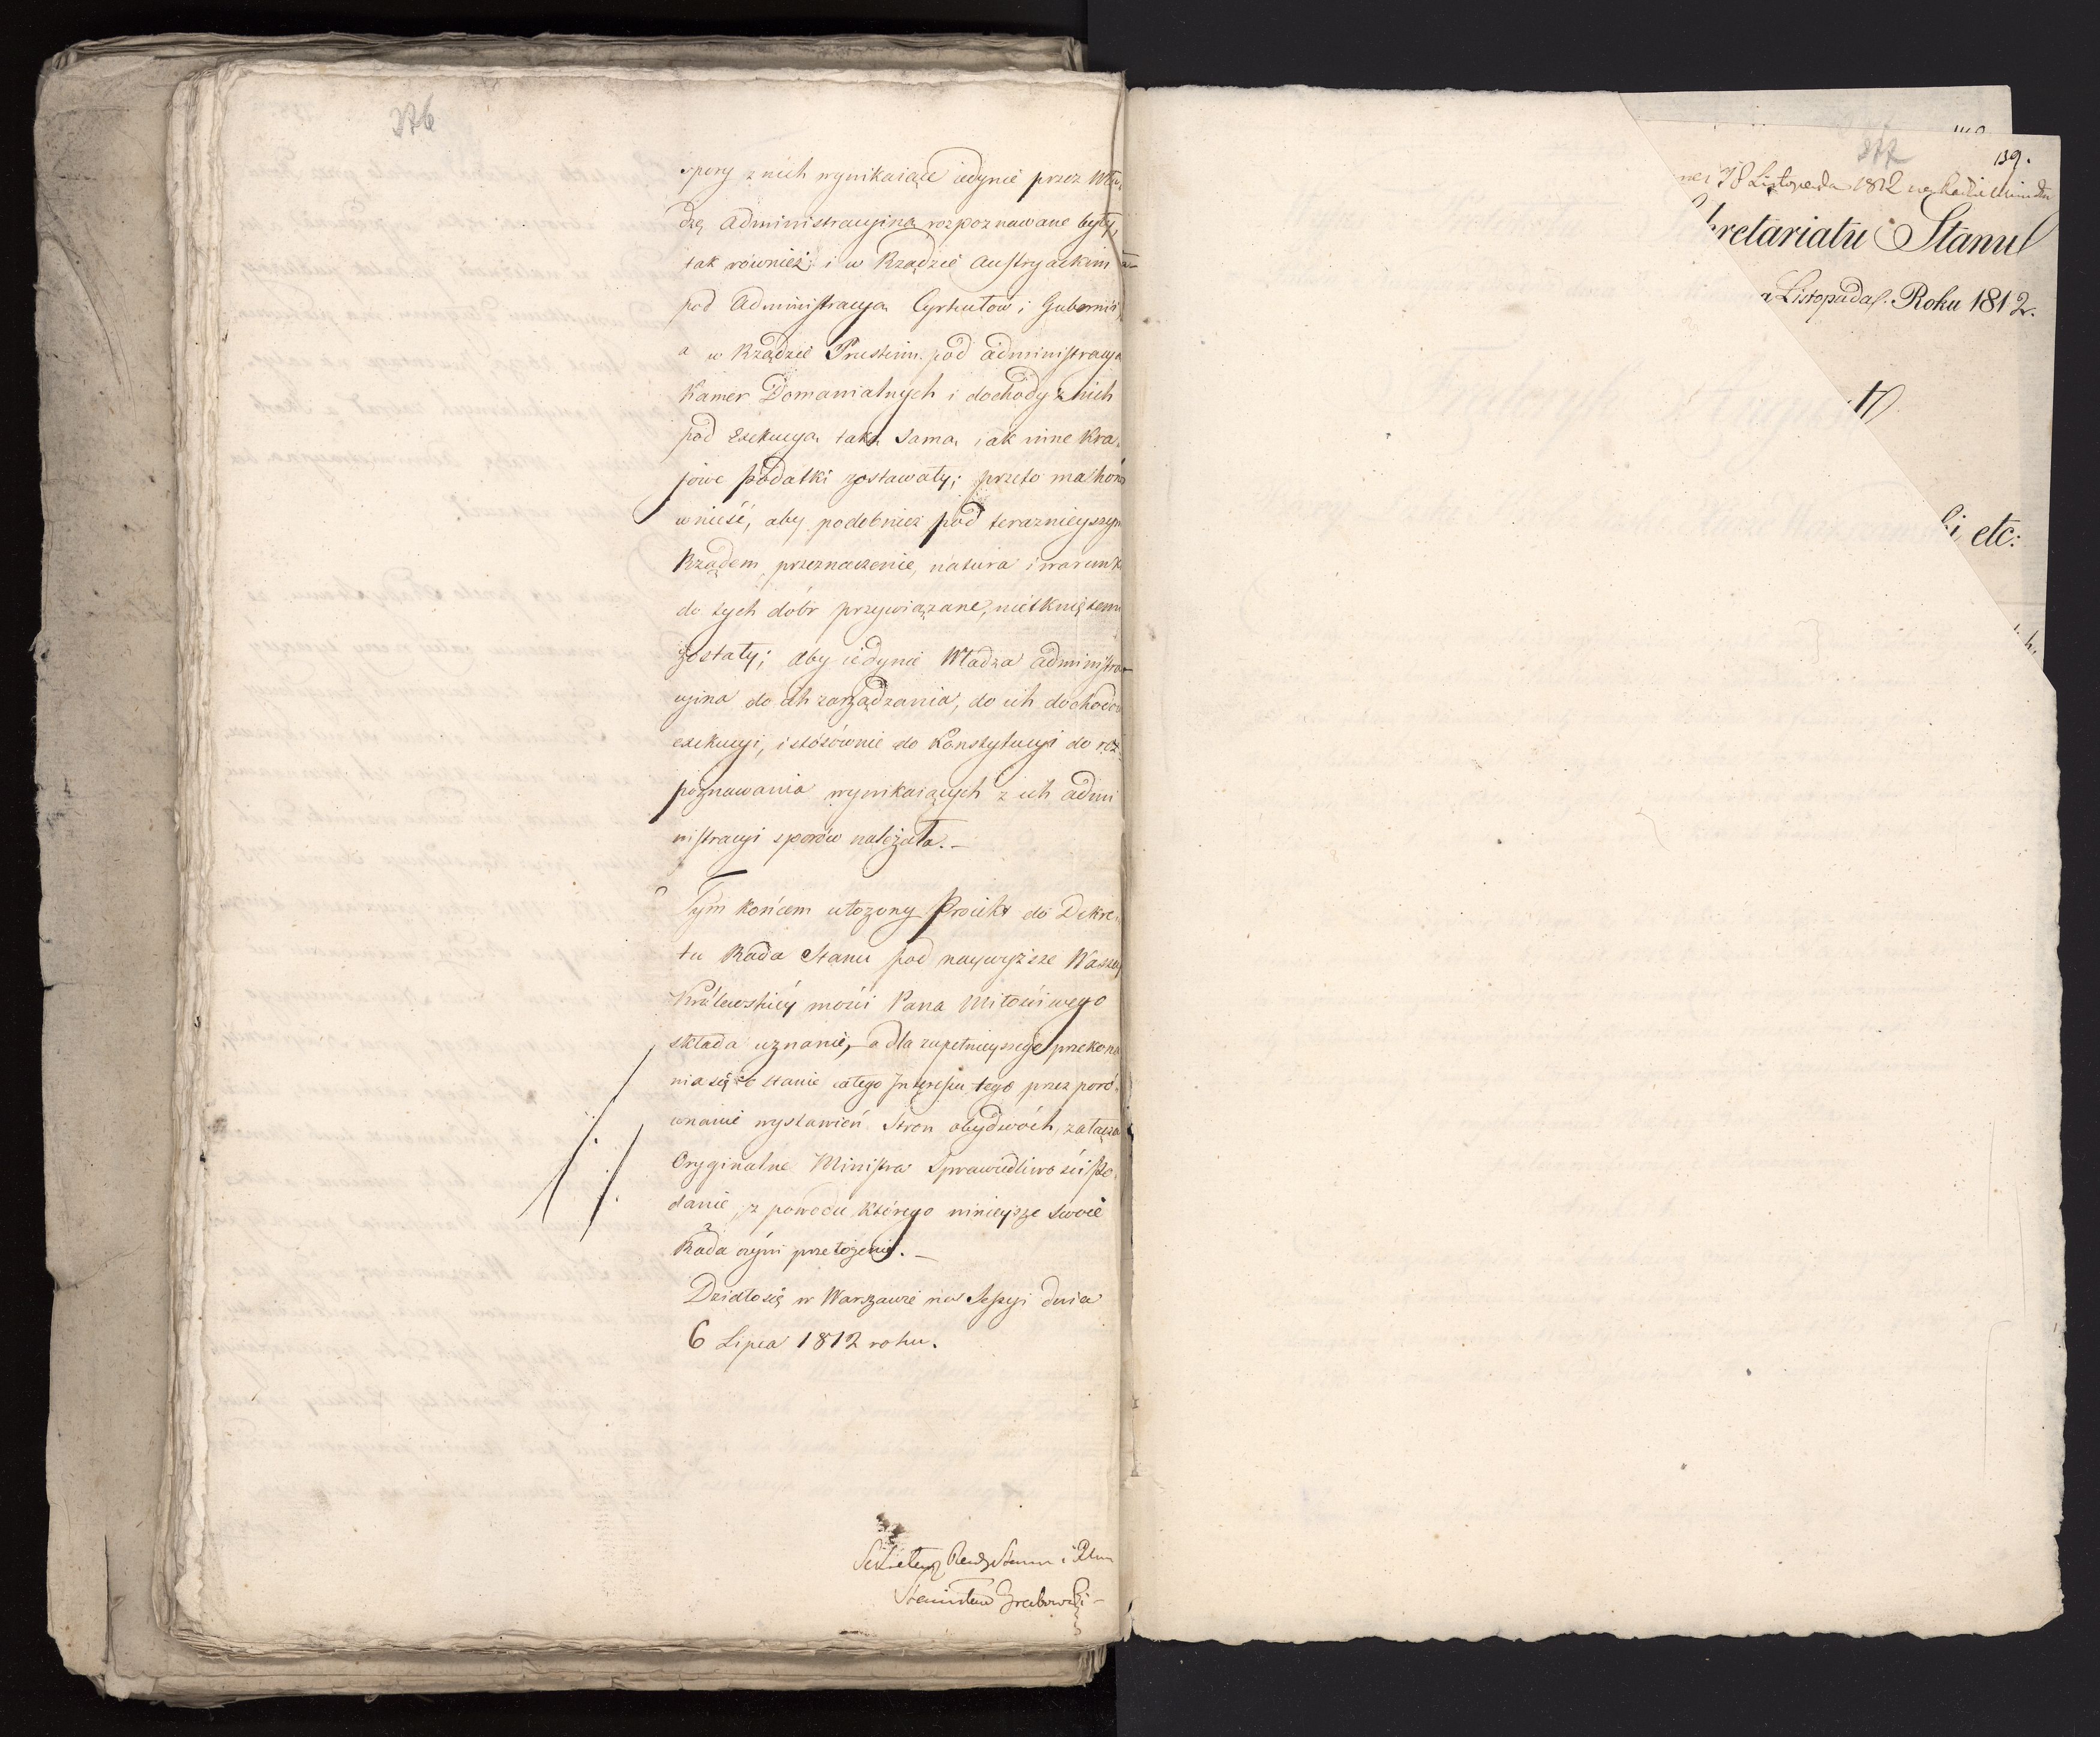 376
spory z nich wynikaiące iedynie przez Wła
dzę administracyiną rozpoznawane były,
tak również i w Rządzie Austryackim
pod Administracyą Cyrkułow i Gubernii,
a w Rządzie Pruskim pod administracyą
Kamer Domanialnych i dochody z nich
pod Exekucyą taką samą iak inne Kra,
jowe podatki zostawały; przeto ma honor
wnieść, aby podobnież pod teraznieyszym
Rządem przeznaczenie, natura i warunki
do tych dóbr przywiązane, nietkniętemi
zostały; aby iedynie Władza administra
cyina do ich zarządzania, do ich dochodów
exekucyi, i stósównie do Konstytucyi do roz,
poznawania wynikaiących z ich admi
nistracyi sporów należała. —
Tym końcem ułożony Proiekt do Dekre,
tu Rada Stanu pod naywyższe Waszey
Królewskiéy mości Pana Miłościwego
składa uznanie, a dla zupełnieyszego przekona
nia się o stanie całego Interessu tego przez poró,
wnanie wystawień Stron obydwóch, załącza
Oryginalne Ministra Sprawiedliwości Po,
danie, z powodu którego ninieysze swoie
Rada czyni przełożenie. —
Działo się w Warszawie na Sessyi dnia
6 Lipca 1812 roku.
Sekretarz Rady Stanu i Min
Stanisław Grabowski
377
139.
18 Listopada 1812
kretariatu Stanu
Listopada Roku 1812.
ki, etc: